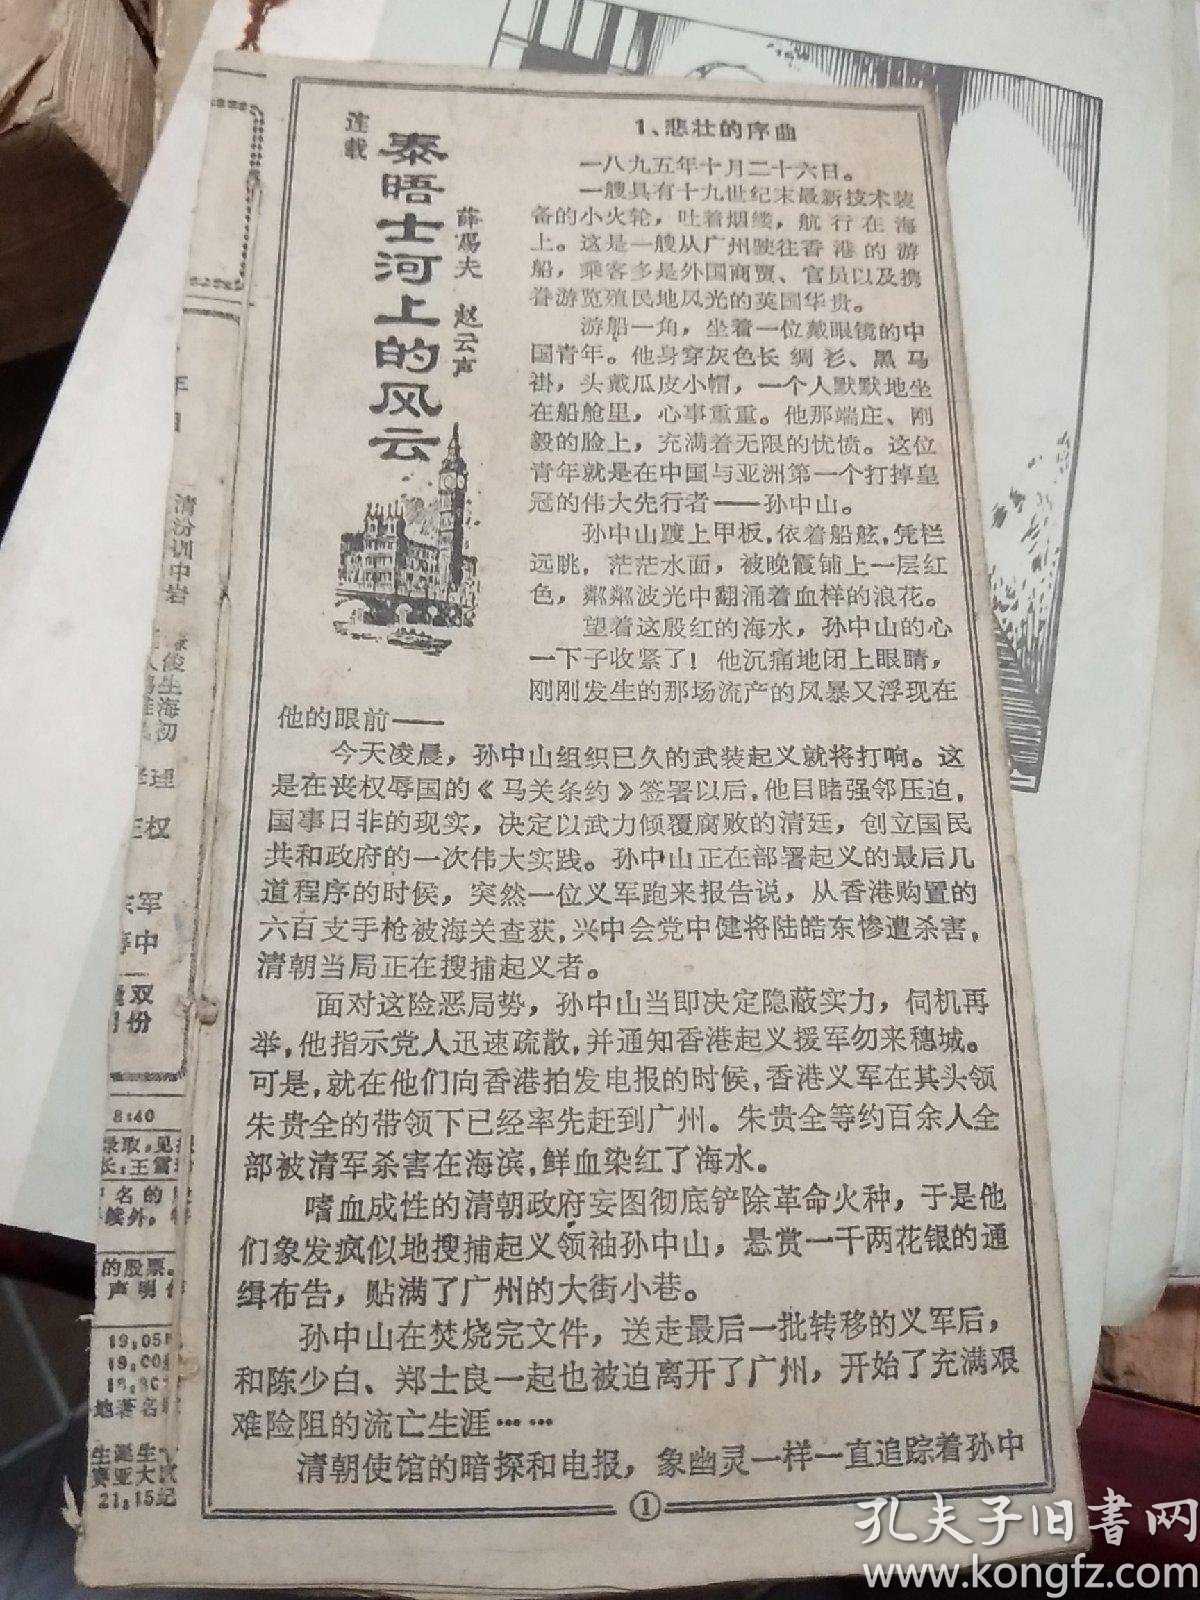 连载
泰晤士河上的风云
薛焉夫 赵云声
1、悲壮的序曲
一八九五年十月二十六日。
一艘具有十九世纪末最新技术装
备的小火轮，吐着烟缕，航行在海
上。这是一艘从广州驶往香港的游
船，乘客多是外国商贾、官员以及携
眷游览殖民地风光的英国华贵。
游船一角，坐着一位戴眼镜的中
国青年。他身穿灰色长绸衫、黑马
褂，头戴瓜皮小帽，一个人默默地坐
在船舱里，心事重重。他那端庄、刚
毅的脸上，充满着无限的忧愤。这位
青年就是在中国与亚洲第一个打掉皇
冠的伟大先行者——孙中山。
孙中山踱上甲板，依着船舷，凭栏
远眺，茫茫水面，被晚霞铺上一层红
色，粼粼波光中翻涌着血样的浪花。
望着这殷红的海水，孙中山的心
一下子收紧了！他沉痛地闭上眼睛，
刚刚发生的那场流产的风暴又浮现在
他的眼前——
今天凌晨，孙中山组织已久的武装起义就将打响。这
是在丧权辱国的《马关条约》签署以后，他目睹强邻压迫，
国事日非的现实，决定以武力倾覆腐败的清廷，创立国民
共和政府的一次伟大实践。孙中山正在部署起义的最后几
道程序的时候，突然一位义军跑来报告说，从香港购置的
六百支手枪被海关查获，兴中会党中健将陆皓东惨遭杀害，
清朝当局正在搜捕起义者。
面对这险恶局势，孙中山当即决定隐蔽实力，伺机再
举，他指示党人迅速疏散，并通知香港起义援军勿来穗城。
可是，就在他们向香港拍发电报的时候，香港义军在其头领
朱贵全的带领下已经率先赶到广州。朱贵全等约百余人全
部被清军杀害在海滨，鲜血染红了海水。
嗜血成性的清朝政府妄图彻底铲除革命火种，于是他
们象发疯似地搜捕起义领袖孙中山，悬赏一千两花银的通
缉布告，贴满了广州的大街小巷。
孙中山在焚烧完文件，送走最后一批转移的义军后，
和陈少白、郑士良一起也被迫离开了广州，开始了充满艰
难险阻的流亡生涯……
清朝使馆的暗探和电报，象幽灵一样一直追踪着孙中
①
清汾训中岩
俊生海初
理
权
军
中
双
份
8:40
录取，见
长：王雪
名的
续外。
的股票。
声明
19:05
19:00
地著名
生涎生
赛亚大
21:15纪
孔夫子旧书网
www.kongfz.com